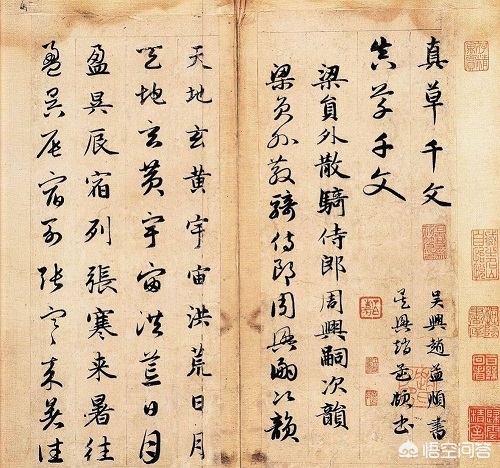 真草千文
真草千文
吳興趙孟頫書
吳興趙孟頫書
梁員外散騎侍郎周興嗣次韻
梁員外散騎侍郎周興嗣次韻
天地玄黄宇宙洪荒日月
天地玄黄宇宙洪荒日月
盈昃辰宿列張寒来暑往
盈昃辰宿列張寒来暑往
悟空问答